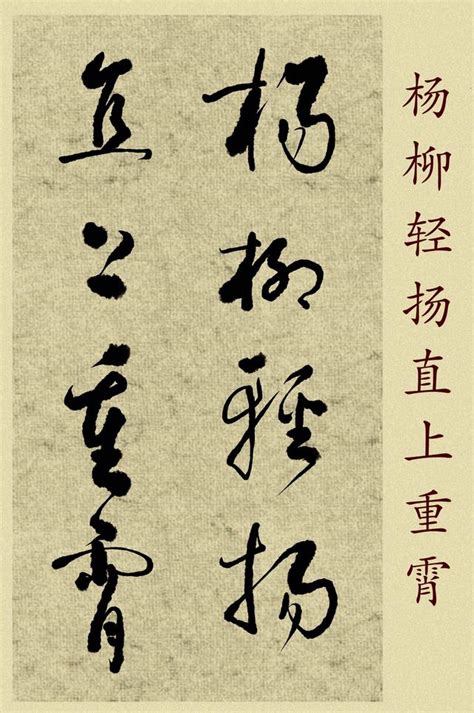 杨柳轻扬直上重霄
杨柳轻扬
直上重霄